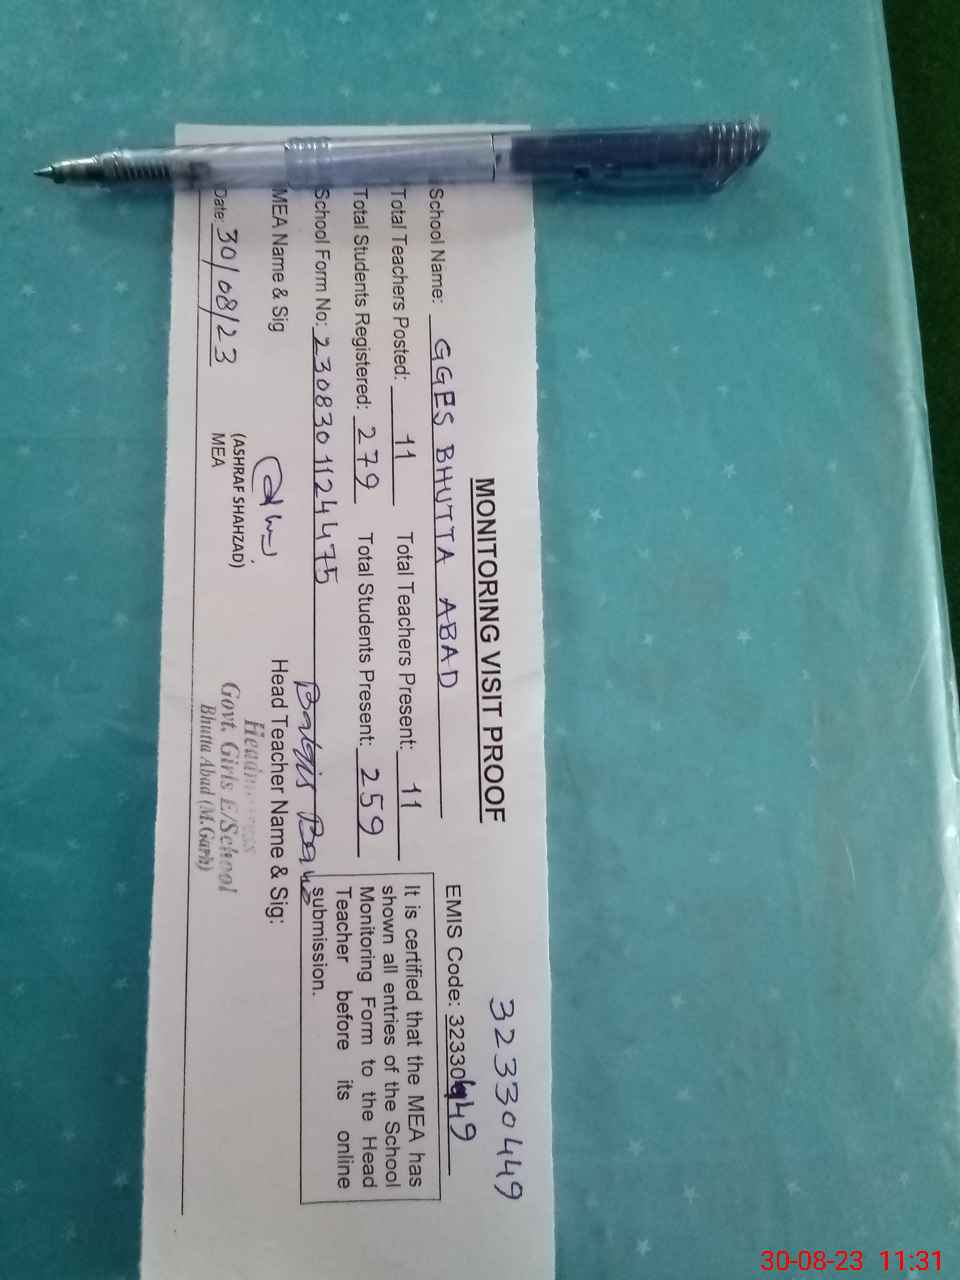 32330449
MONITORING VISIT PROOF
School Name: GGES BHUTTA ABAD
EMIS Code: 32330449
Total Teachers Posted: 11 Total Teachers Present: 11
Total Students Registered: 279 Total Students Present: 259
School Form No: 230830 1124475
It is certified that the MEA has
shown all entries of the School
Monitoring Form to the Head
Teacher before its online
submission.
Balqis Bano
MEA Name & Sig
Head Teacher Name & Sig:
(ASHRAF SHAHZAD)
MEA
Headmistress
Govt. Girls E/School
Bhutta Abad (M.Garh)
Date: 30/08/23
30-08-23 11:31